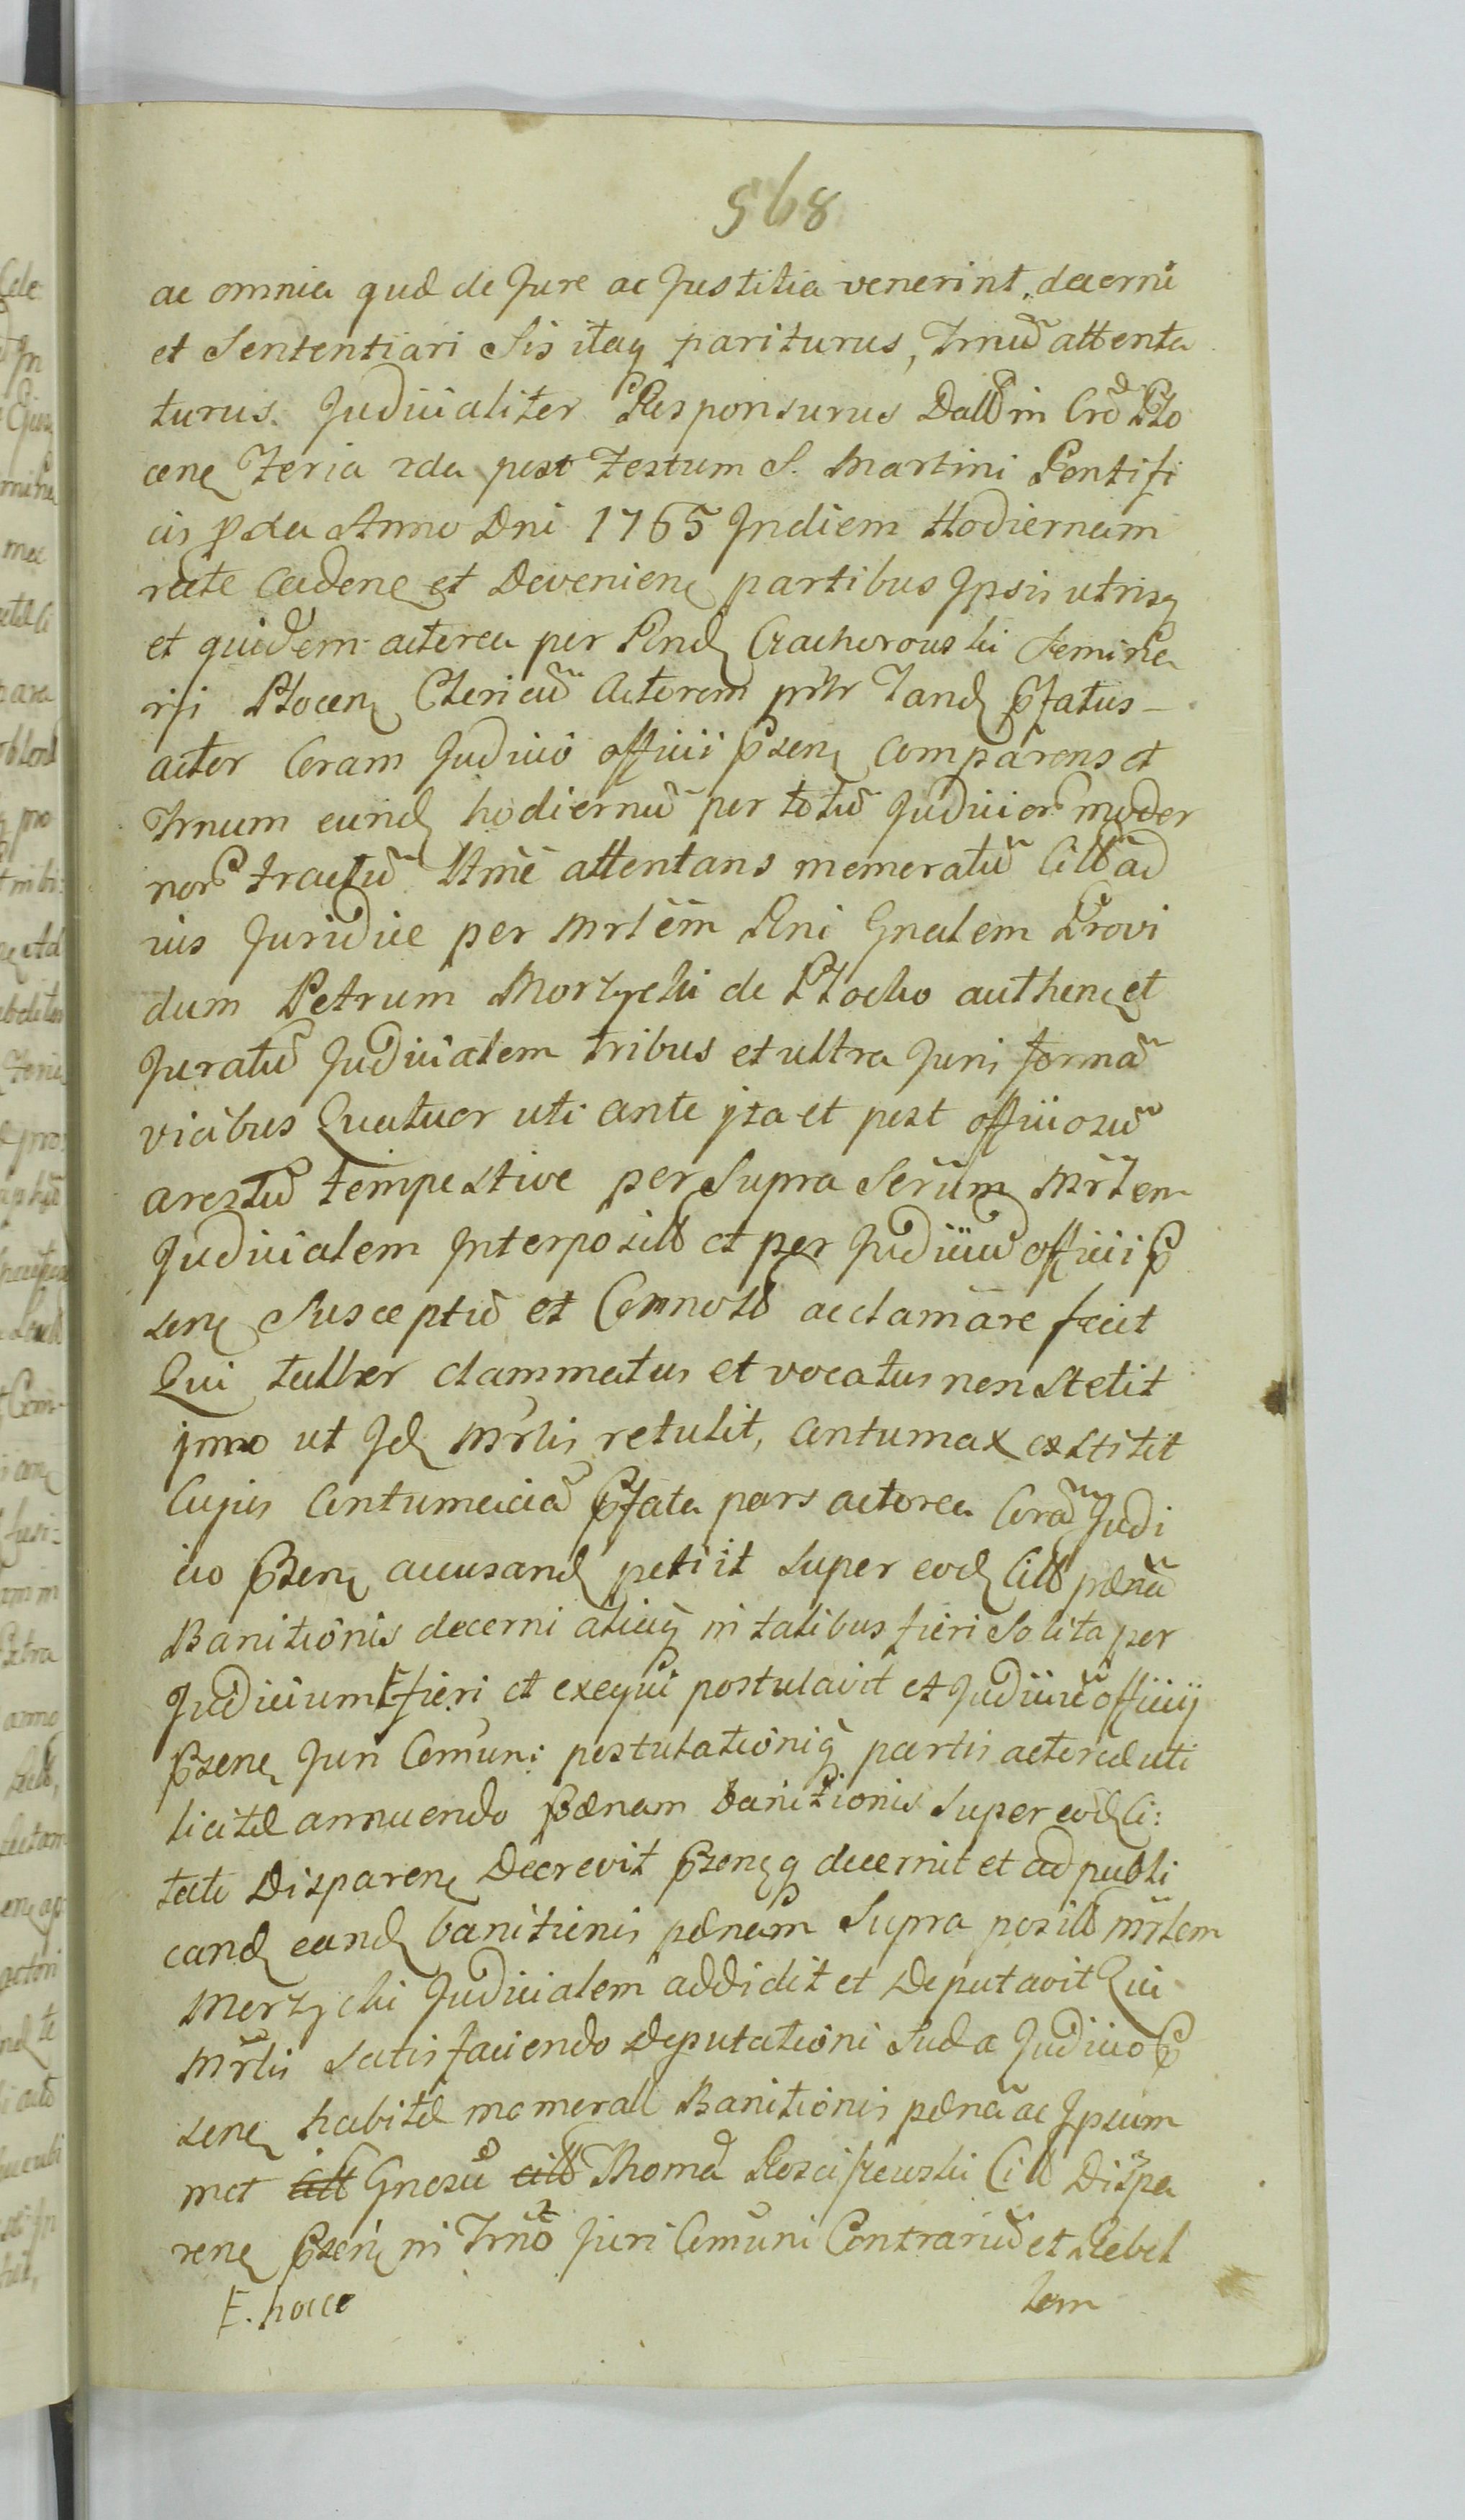 568
ac omnia quæ de Jure ac Justitia venerint, decerni
et Sententiari Sis itaq pariturus, Trnũ attenta
turus. Judicialiter Responsurus Datt in Crõ Plo
cenę Feria 2da post Festum S. Martini Pontifi
cis pxa Anno Dni 1765 Indiem Hodiernam
recte Cadenę et Devenienę partibus Ipsis utrisq
et quidem actorea per Rndę Czachorowski Semina
rÿi Plocenę Clericũ Actorem prñr Tandę Pfatus
actor Coram Judicio officii Pzenę comparens et
Trnum eundę hodiernũ per totũ Judicior moder
nor tractũ Ltmẽ attentans memeratũ Citt ad
uis Juridice per Mrlẽm Rni Gnalem Provi
dum Petrum Morzycki de Plocko authenę et
Juratũ Judicialem tribus et ultra Juris formã
vicibus Quatuor uti ante jta et post officiosũ
arestũ tempestive per Supra Serũm Mrlem
Judicialem Interpositt et per Judiciũ officii P
zenę Susceptũ et Connott acclamare fecit
Qui talter clammatus et vocatus non Stetit
jmo ut Idę Mrlis retulit, Contumax exstitit
Cujus Contumaciã Pfata pars actorea Corã Judi
cio Pzenę accusandę petiit super eodę Citt pænã
Banitionis decerni aliaq in talibus fieri Solita per
Judicium F fieri et exequi postulavit et Judiciũ officÿ
Pzenę Juri Comuni postulationiq partis actoreæ uti
licitæ annuendo pænam banitionis super eodę Ci:
tato Disparenę Decrevit Pzenęq decernit et ad publi
candę eandę banitionis pænam Supra positt Mrlem
Morzycki Judicialem addidit et Deputavit Qui
Mrlis Satisfaciendo Deputationi Suæ a Judicio P
zenę habitæ memeratt Banitionis pænã ac Ipsum
met Citt Gnosũ citt Thomã Kosciszewski Citt Dispa
renę Pzenę in Trnõ Juri Comuni Contrariũ et Rebel
F. hocce
lem